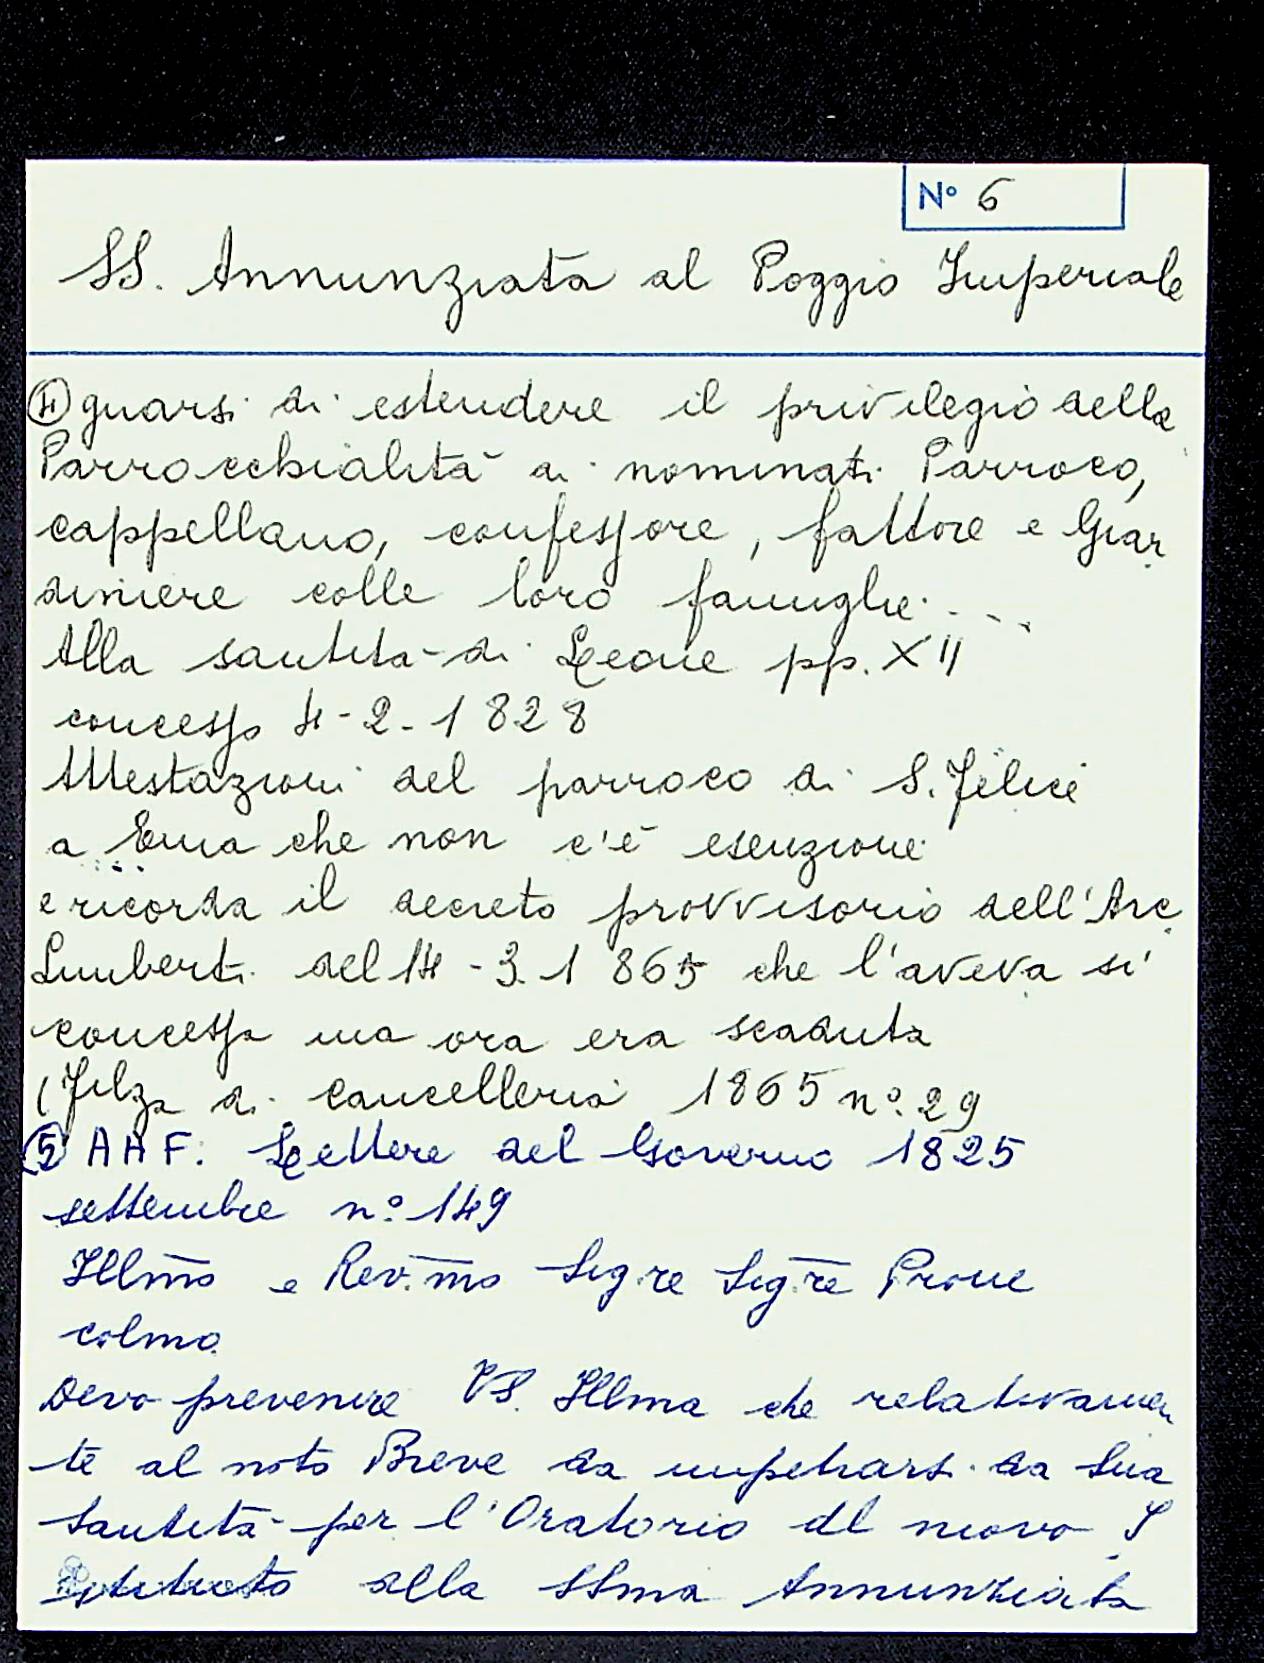 N° 6
SS. Annunziata al Poggio Imperiale
④ guarsi di estendere il privilegio della
Parrocchialità ai nominati Parroco,
cappellano, confessore, fattore e Giar
diniere colle loro famiglie....
Alla santità di Leone pp. XII
concesso 4-2-1828
Attestazioni del parroco di S. Felice
a Ema che non c'è esenzione
e ricorda il decreto provvisorio dell'Arc.
Limberti del 14-3-1865 che l'aveva sì
concessa ma ora era scaduta
(Filza di Cancelleria 1865 n°. 29
⑤ AAF: Lettere del Governo 1825
settembre n°. 149
Illmo e Rev.mo Sig.re Sig.re Prone
colmo
Devo prevenire VS. Illma che relativamen
te al noto Breve da impetrarsi da Sua
Santità per l'Oratorio dl nuovo I
stituto della SSma Annunziata